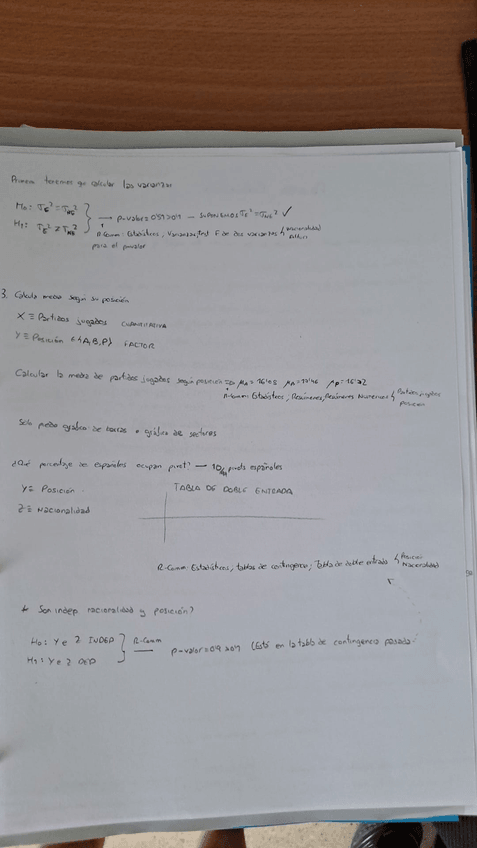 Primero tenemos que calcular las varianzas
H₀: σE² = σNE²
H₁: σE² ≠ σNE²
→ p-valor = 0'59 > 0'1 — SUPONEMOS σE² = σNE² ✓
R-Comm: Estadísticos, Varianzas, Test F de dos varianzas
para el p-valor
3. Calcula media según su posición
X ≡ Partidos jugados CUANTITATIVA
Y ≡ Posición ∈ {A,B,P} FACTOR
Calcular la media de partidos jugados según posición
R-Comm: Estadísticos, Resúmenes, Resúmenes Numéricos
Partidos jugados
posición
Solo medio gráfico de barras o gráfico de sectores
¿Qué porcentaje de españoles ocupan pivot? — pivots españoles
Y ≡ Posición
TABLA DE DOBLE ENTRADA
Z ≡ Nacionalidad
R-Comm: Estadísticos; tablas de contingencia; Tabla de doble entrada
Posición
Nacionalidad
Son indep nacionalidad y posición?
H₀: Y e Z INDEP
R-Comm
H₁: Y e Z DEP
p-valor = 0'9 > 0'1 (Está en la tabla de contingencia pasada